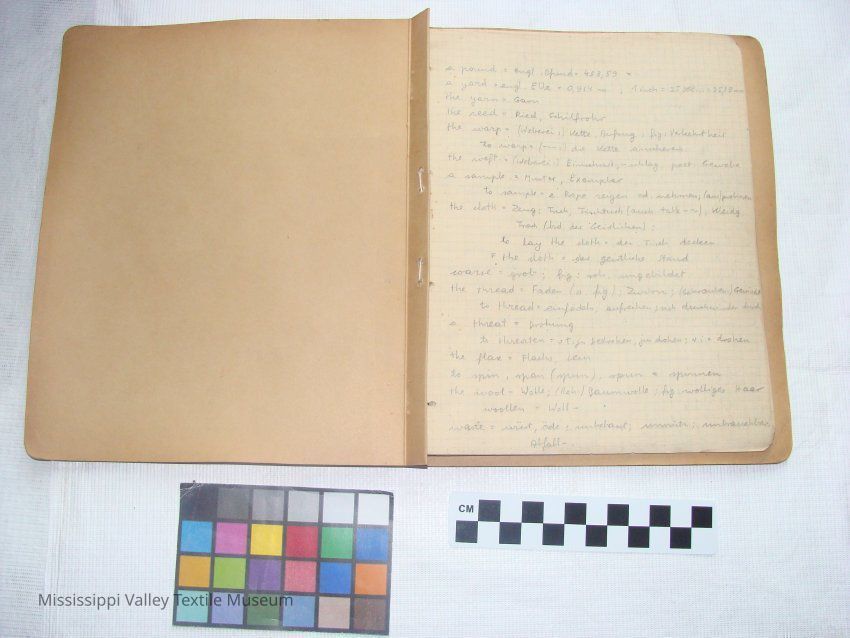 a pound = engl. Pfund = 453,59
a yard = engl. Elle = 0,914 m ; 1 inch =
the yarn = Garn
the reed = Ried, Schilfrohr
the warp = (Weberei:) Kette, Aufzug ; fig: Verkehrtheit
to warp = die Kette anscheren
the weft = (Weberei) Einschuss, -schlag, poet. Gewebe
a sample = Muster, Exemplar
to sample = e. Probe zeigen od. nehmen,
the cloth = Zeug; Tuch, Tischtuch (auch table-~);
Tracht (bsd der Geistlichen);
to lay the cloth = den Tisch decken
the cloth = der geistliche Stand
coarse = grob ; fig: roh, ungebildet
the thread = Faden (a fig); Zwirn; (Schrauben)Gewinde
to thread = einfädeln, aufreihen; sich
a threat = Drohung
to threaten = v.t. jn bedrohen, jm drohen; v.i = drohen
the flax = Flachs, Lein
to spin, span (spun), spun = spinnen
the wool = Wolle; (Roh) Baumwolle; fig. wolliges Haar
woollen = Woll-
waste = wüst, öde; unbebaut; unnütz; unbrauchbar
Abfall-
CM
Mississippi Valley Textile Museum